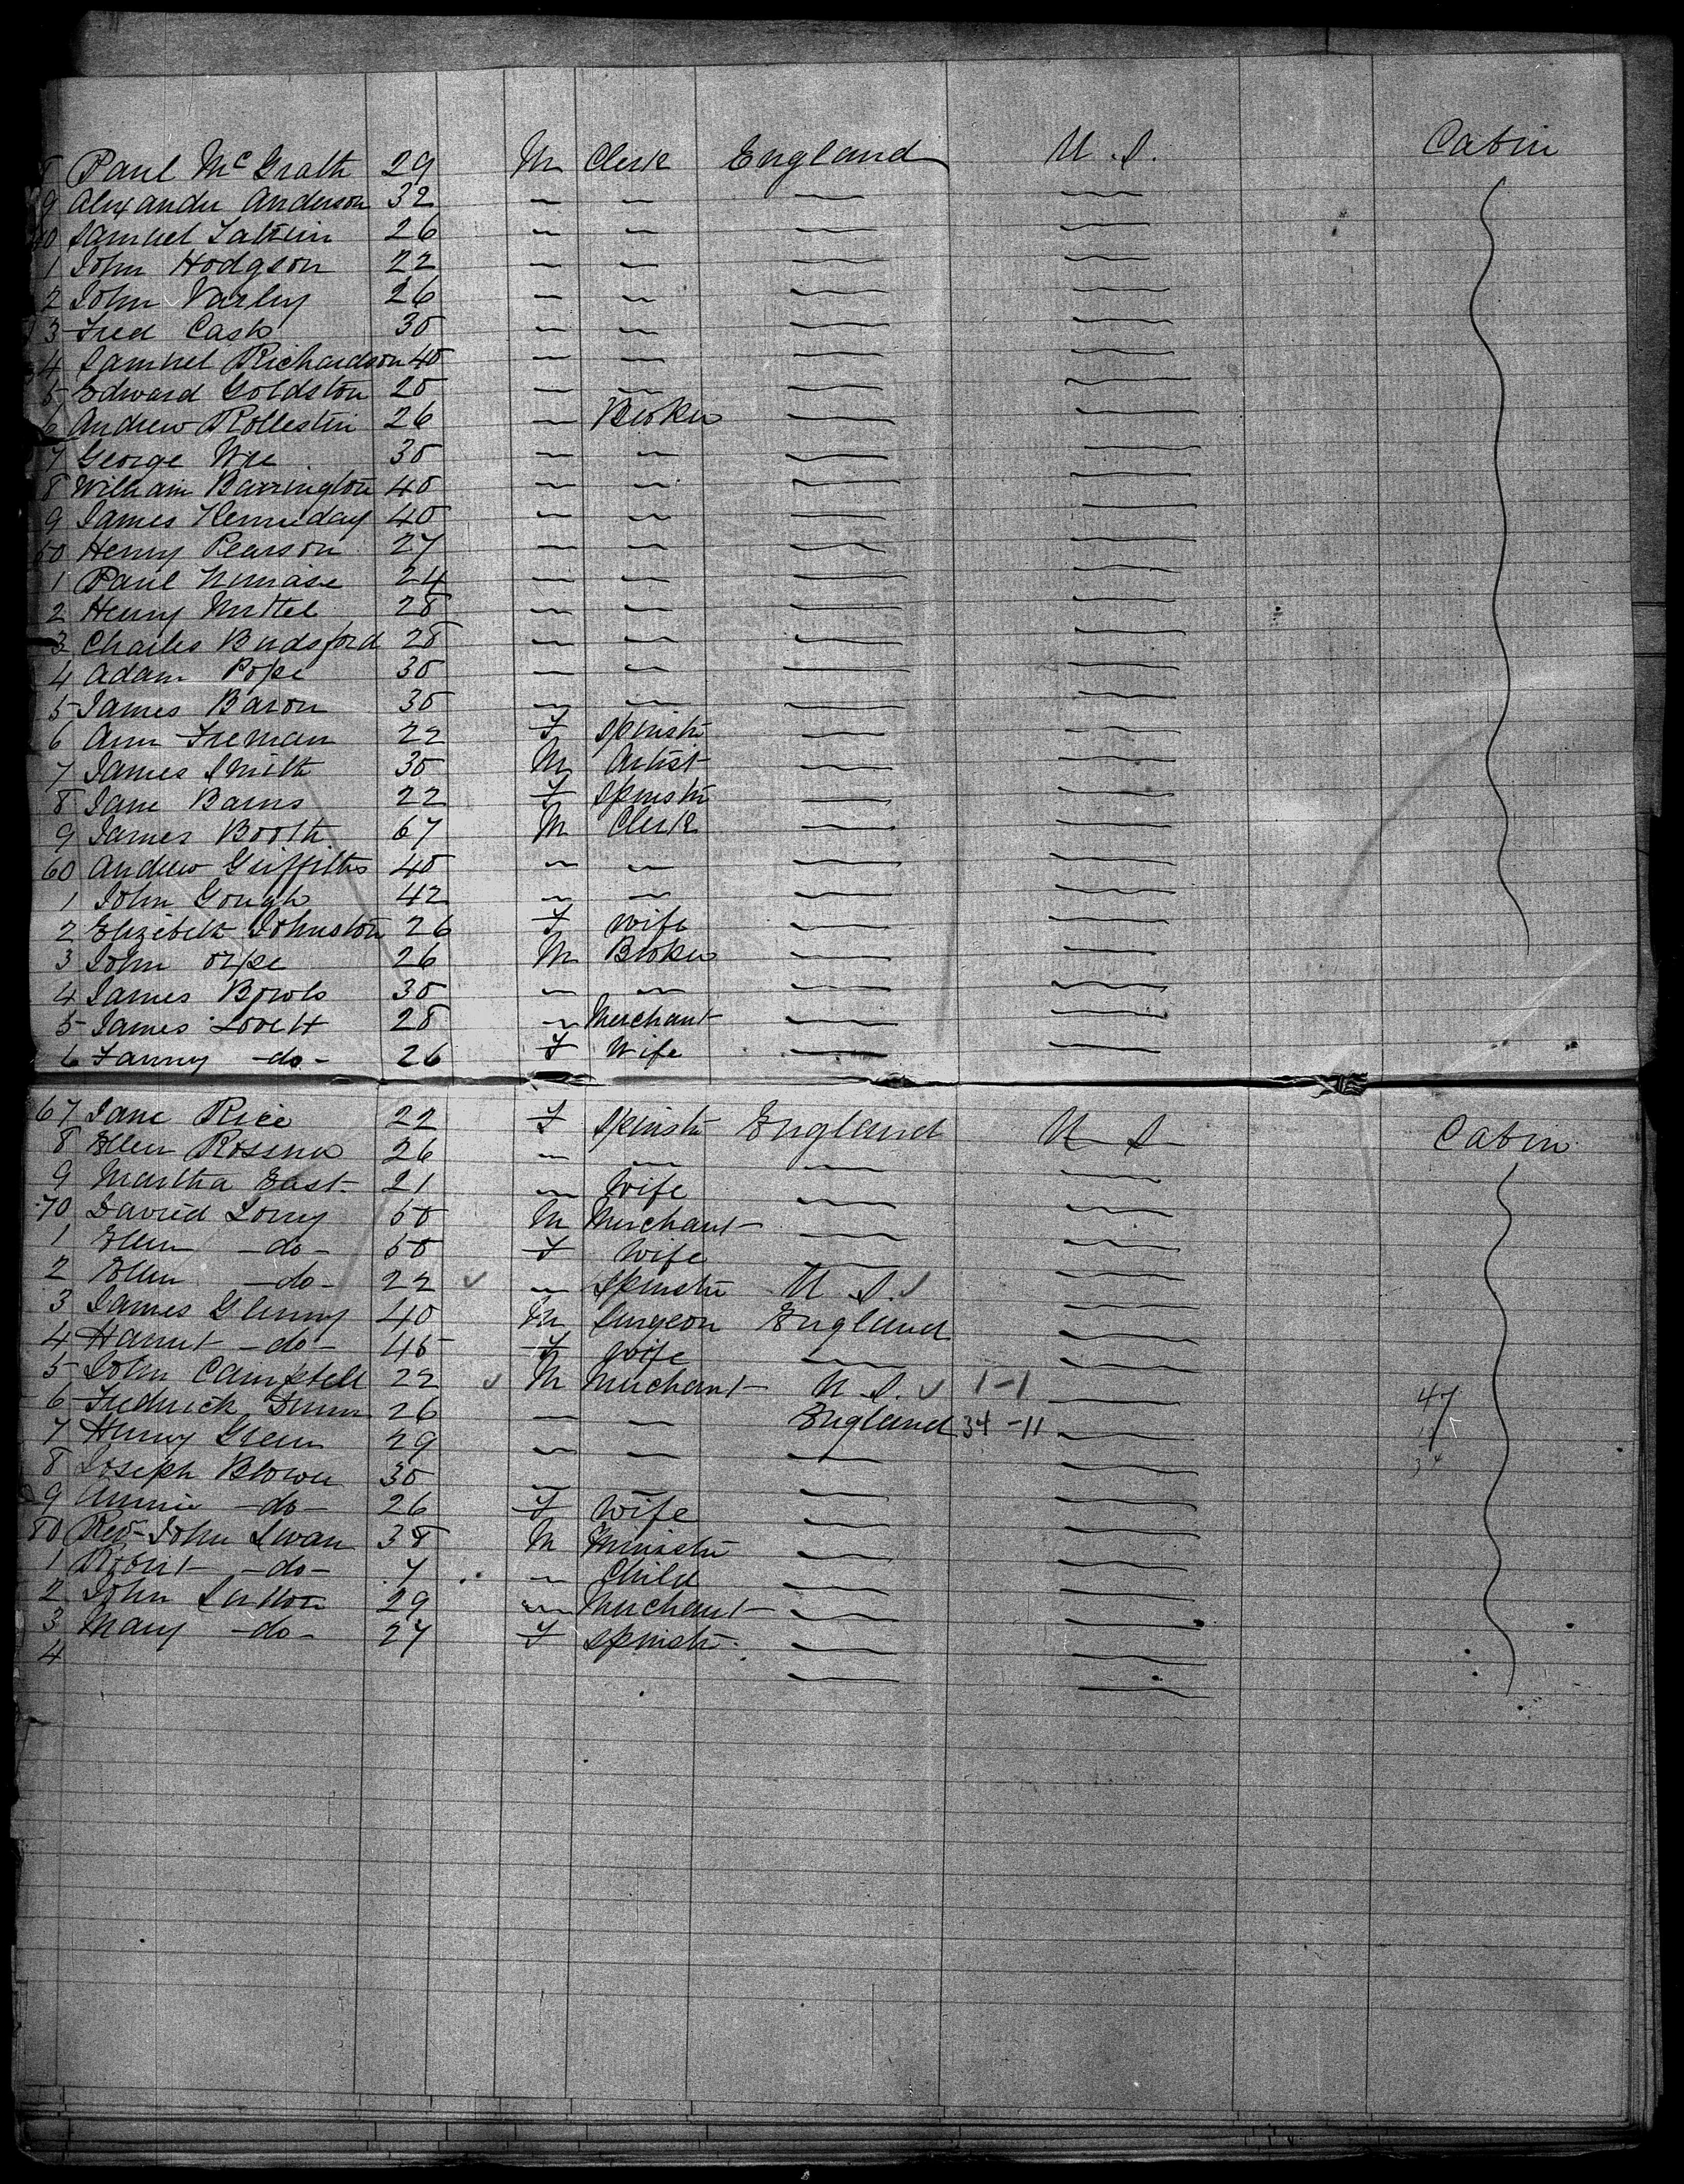 8 Paul McGrath 29 M Clerk England U.S. Cabin
9 Alexander Anderson 32 — — — —
40 Samuel 26 — — — —
1 John Hodgson 22 — — — —
2 John Varley 26 — — — —
3 Fred Cash 30 — — — —
4 Samuel Richardson 40 — — — —
5 Edward Goldston 20 — — — —
6 Andrew Rollestin 26 — Broker — —
7 George 30 — — — —
8 William Barrington 40 — — — —
9 James Kenneday 40 — — — —
50 Henry Pearson 27 — — — —
1 Paul 24 — — — —
2 Henry 28 — — — —
3 Charles 28 — — — —
4 Adam Pope 30 — — — —
5 James Baron 30 — — — —
6 Ann Freeman 22 F Spinstr — —
7 James Smith 30 M Artist — —
8 Jane Barns 22 F Spinstr — —
9 James Booth 67 M Clerk — —
60 Andrew Griffiths 40 — — — —
1 John Gough 42 — — — —
2 Elizebeth Johnston 26 F Wife — —
3 John Orpe 26 M Broker — —
4 James Bowls 30 — — — —
5 James Lovett 28 — Merchant — —
6 Fanny -do- 26 F Wife — —
67 Jane Rice 22 F Spinstr England U S Cabin
8 Ellen 26 — — — —
9 Martha East 21 — Wife — —
70 David Lorry 50 M Merchant — —
1 Ellen -do- 50 F Wife — —
2 Ellen -do- 22 — Spinstr U S. —
3 James Glenny 40 M Surgeon England —
4 Harriet -do- 45 F Wife — —
5 John Campbell 22 M Merchant U S. 1-1 —
6 Fredrick 26 — — England 34-11 — 47
7 Henry Green 29 — — — —
8 Joseph Blower 30 — — — —
9 Annie -do- 26 F Wife — —
80 Rev John Swan 38 M Ministr — —
1 Robert -do- 7 — Child — —
2 John Sutton 29 — Merchant — —
3 Mary -do- 27 F Spinstr — —
4 — —